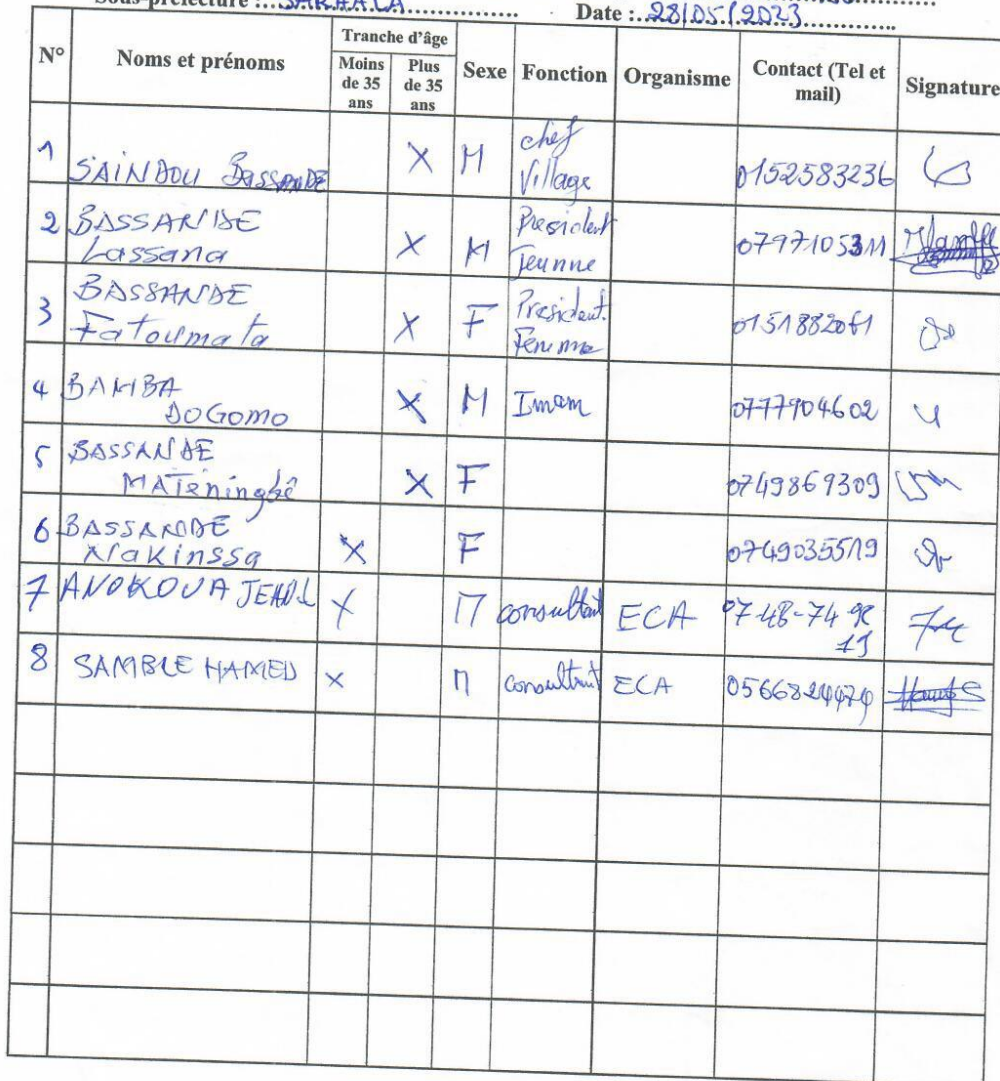 Sous-préfecture : SARHALA Date : 28/05/2023
N° Noms et prénoms Tranche d'âge Moins de 35 ans Plus de 35 ans Sexe Fonction Organisme Contact (Tel et mail) Signature
1 SAINDOU BASSANDE X M chef Village 0152583236
2 BASSANDE Lassana X M President Jeunne 0797105311
3 BASSANDE Fatoumata X F President Femme 0151882061
4 BAMBA DOGOMO X M Imam 0777904602
5 BASSANDE MATeningbê X F 0749869309
6 BASSANDE Nakinssa X F 0749035519
7 ANOKOUA JEAN L X M consultant ECA 07-48-74
8 SAMBLE HAMED X M consultant ECA